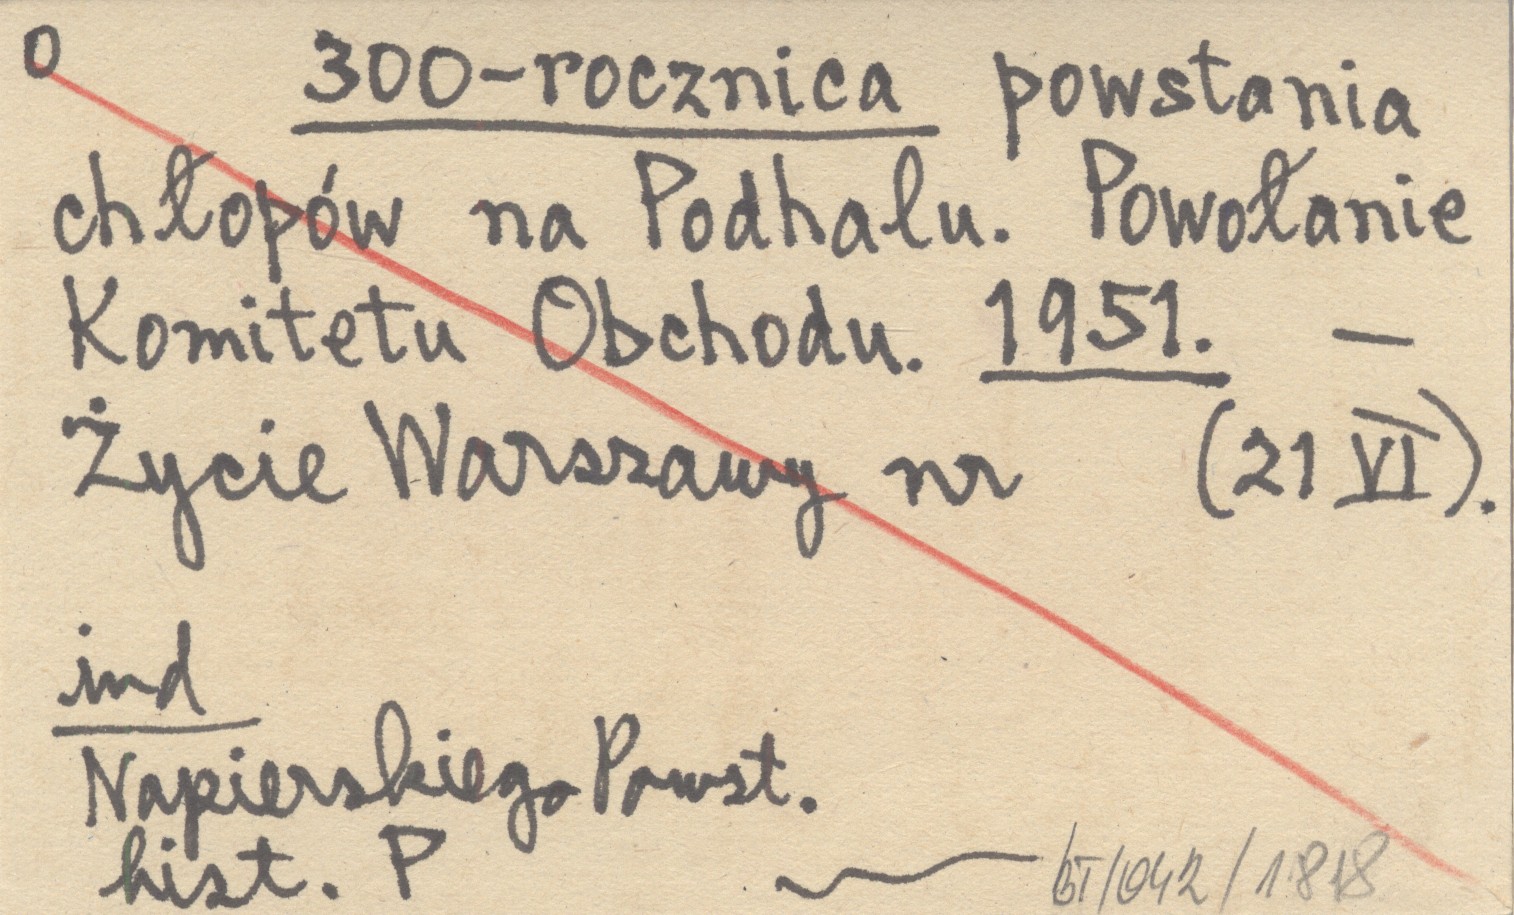 0
300-rocznica powstania
chłopów na Podhalu. Powołanie
Komitetu Obchodu. 1951. —
Życie Warszawy nr (21 VI).
ind
Napierskiego Powst.
hist. P
/042/1818